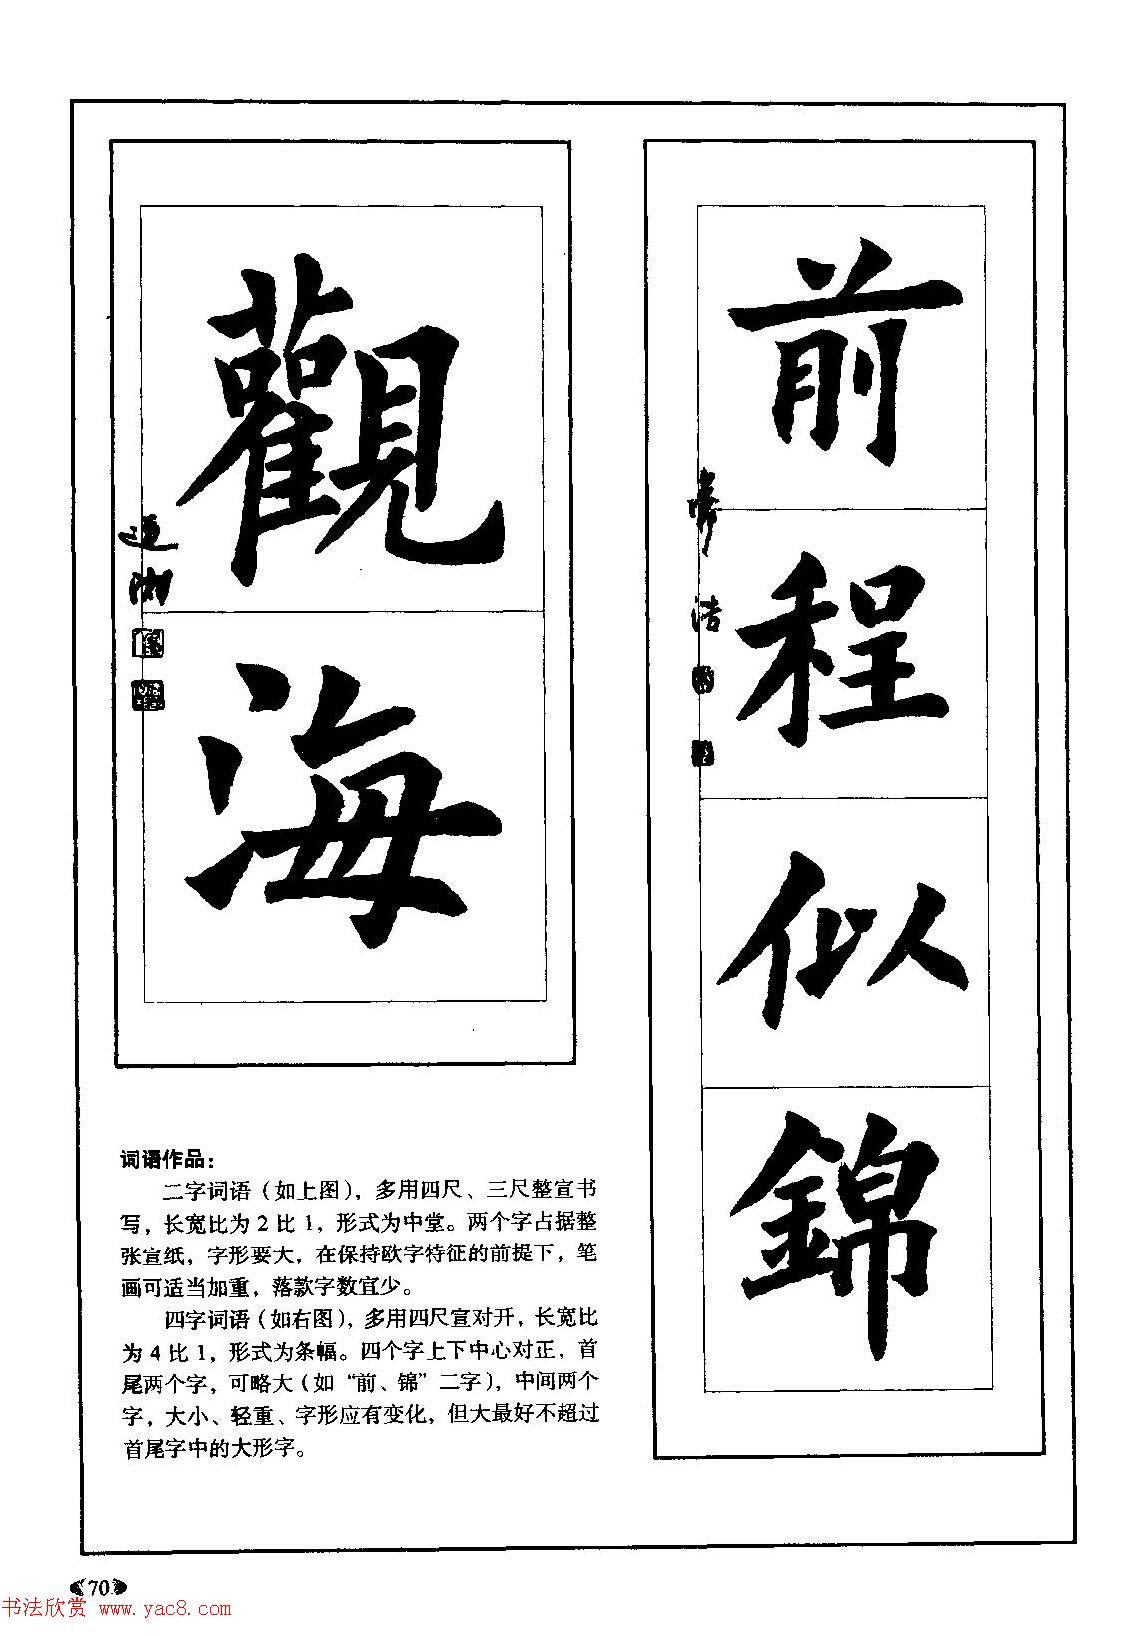 觀
海
前
程
似
錦
词语作品：
二字词语（如上图），多用四尺、三尺整宣书
写，长宽比为 2 比 1，形式为中堂。两个字占据整
张宣纸，字形要大，在保持欧字特征的前提下，笔
画可适当加重，落款字数宜少。
四字词语（如右图），多用四尺宣对开，长宽比
为 4 比 1，形式为条幅。四个字上下中心对正，首
尾两个字，可略大（如“前、锦”二字），中间两个
字，大小、轻重、字形应有变化，但大最好不超过
首尾字中的大形字。
70
书法欣赏 www.yac8.com